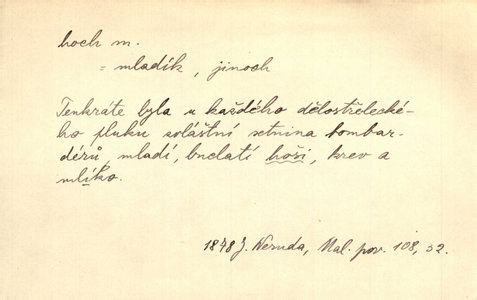 hoch m.
= mladík, jinoch
Tenkráte byla u každého dělostřelecké-
ho pluku zvláštní setnina bombar-
dérů, mladí, buclatí hoši, krev a
mlíko.
1878 J. Neruda, Mal. pov. 108, 32.